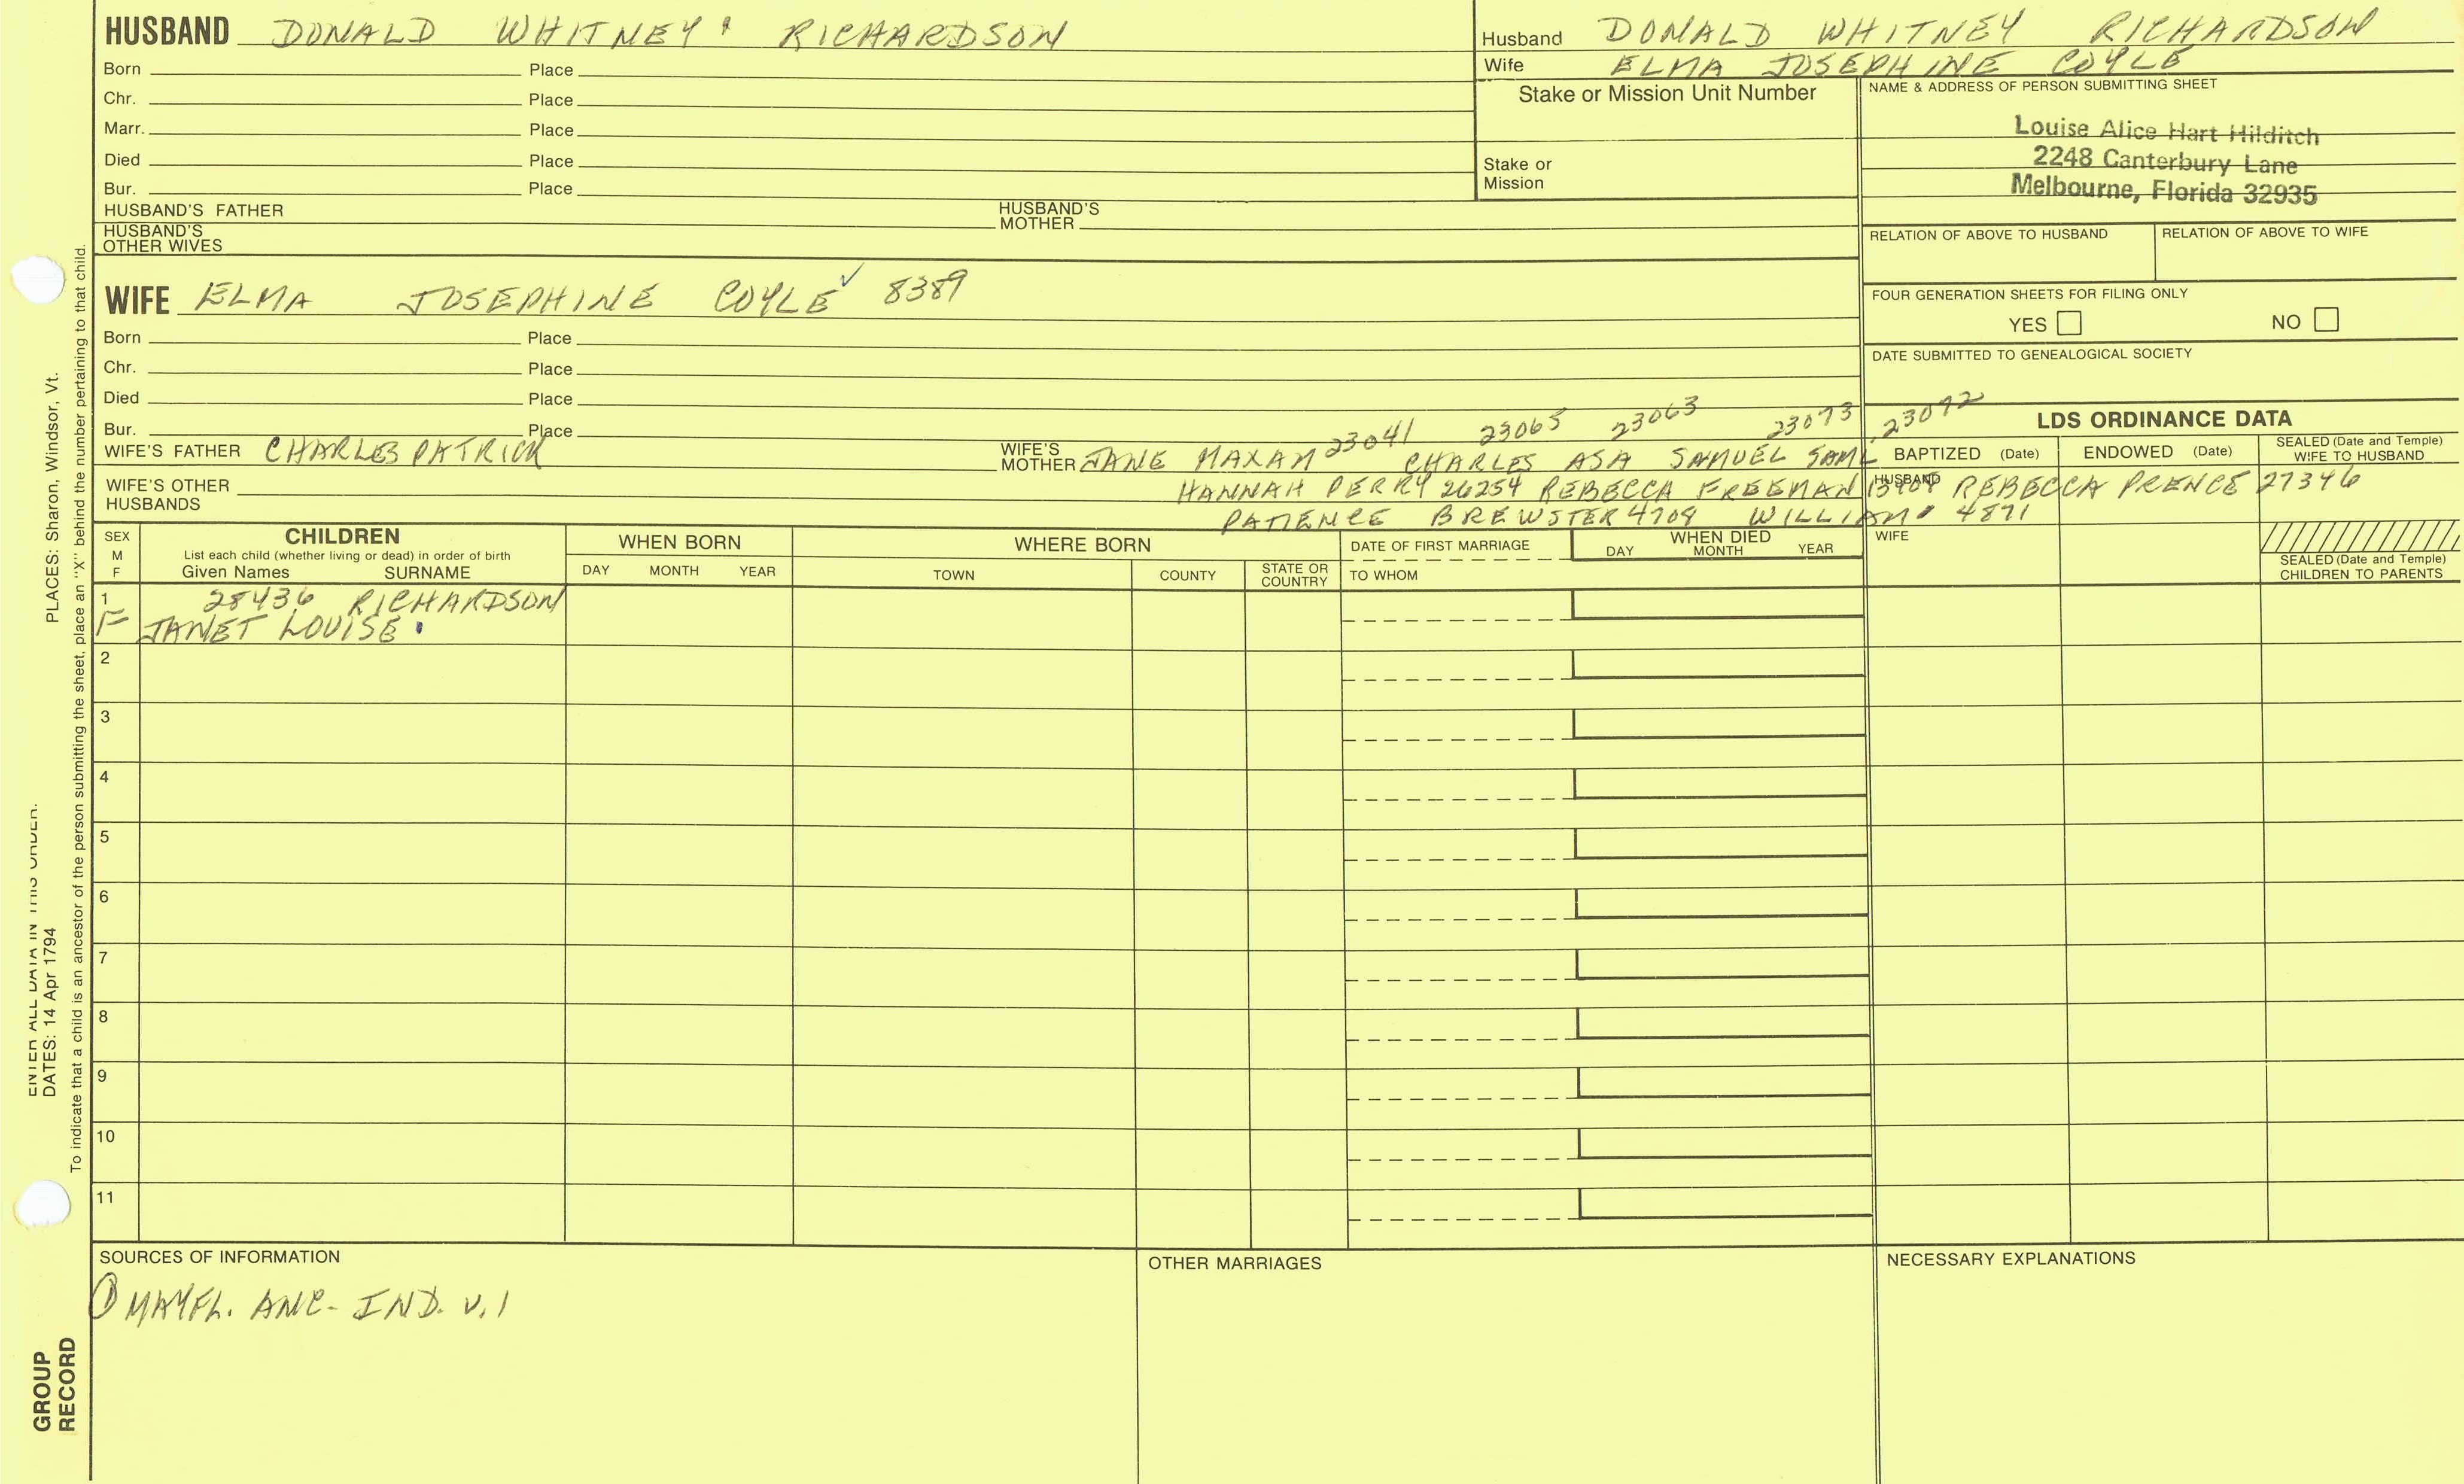 HUSBAND DONALD WHITNEY RICHARDSON
Born Place
Chr. Place
Marr. Place
Died Place
Bur. Place
HUSBAND'S FATHER HUSBAND'S MOTHER
HUSBAND'S OTHER WIVES
Husband DONALD WHITNEY RICHARDSON
Wife ELMA JOSEPHINE COYLE
Stake or Mission Unit Number
Stake or Mission
NAME & ADDRESS OF PERSON SUBMITTING SHEET
Louise Alice Hart Hilditch
2248 Canterbury Lane
Melbourne, Florida 32935
RELATION OF ABOVE TO HUSBAND RELATION OF ABOVE TO WIFE
FOUR GENERATION SHEETS FOR FILING ONLY
YES NO
DATE SUBMITTED TO GENEALOGICAL SOCIETY
WIFE ELMA JOSEPHINE COYLE ✓ 8389
Born Place
Chr. Place
Died Place
Bur. Place
23041 23065 23063 23073, 23072
WIFE'S FATHER CHARLES PATRICK WIFE'S MOTHER JANE MAXAM CHARLES ASA SAMUEL SAML
WIFE'S OTHER HUSBANDS
HANNAH PERRY 26254 REBECCA FREEMAN REBECCA PRENCE 27346
PATIENCE BREWSTER 4708 WILLIAM 4871
LDS ORDINANCE DATA
BAPTIZED (Date) ENDOWED (Date) SEALED (Date and Temple) WIFE TO HUSBAND
HUSBAND
WIFE
SEALED (Date and Temple) CHILDREN TO PARENTS
SEX M F
CHILDREN
List each child (whether living or dead) in order of birth
Given Names SURNAME
WHEN BORN
DAY MONTH YEAR
WHERE BORN
TOWN COUNTY STATE OR COUNTRY
DATE OF FIRST MARRIAGE
TO WHOM
WHEN DIED
DAY MONTH YEAR
1 28436 RICHARDSON
F JANET LOUISE
2
3
4
5
6
7
8
9
10
11
SOURCES OF INFORMATION
① MAYFL. ANC- IND. V.1
OTHER MARRIAGES
NECESSARY EXPLANATIONS
ENTER ALL DATA IN THIS ORDER.
DATES: 14 Apr 1794 PLACES: Sharon, Windsor, Vt.
To indicate that a child is an ancestor of the person submitting the sheet, place an "X" behind the number pertaining to that child.
GROUP
RECORD